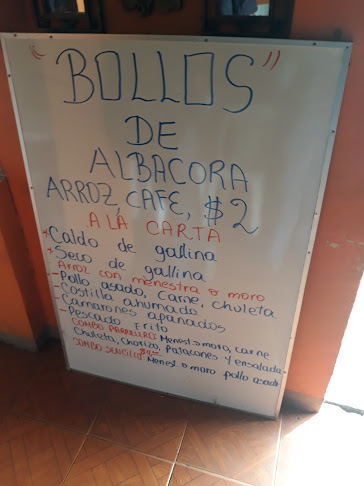 "BOLLOS"
DE
ALBACORA
ARROZ, CAFE, $2
A LA CARTA
*Caldo de gallina
*Seco de gallina
Arroz con menestra o moro
-Pollo asado, Carne, chuleta
-Costilla ahumado
-Camarones apanados
-Pescado Frito
COMBO PARRILLERO Menest o moro, carne
Chuleta, Chorizo, Patacones y ensalada
COMBO SENCILLO Menest o moro pollo asado